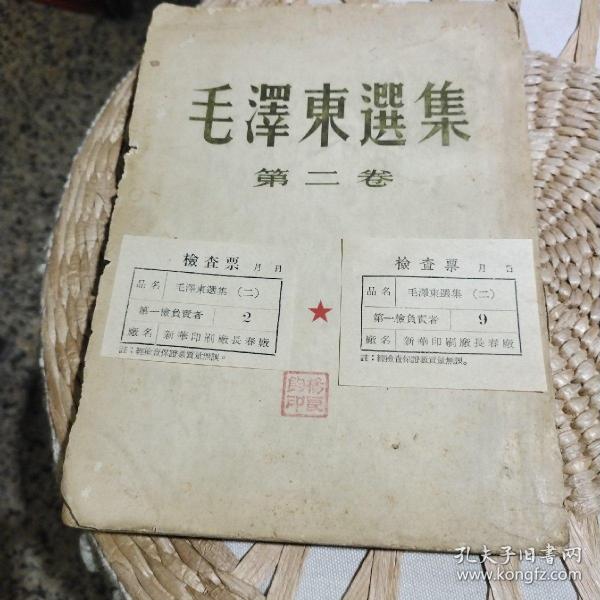 毛澤東選集
第二卷
檢查票 月 日
品名 毛澤東選集（二）
第一檢負責者 2
廠名 新華印刷廠長春廠
註：經檢查保證裝訂質量無誤。
檢查票 月 日
品名 毛澤東選集（二）
第一檢負責者 9
廠名 新華印刷廠長春廠
孔夫子旧书网
www.kongfz.com